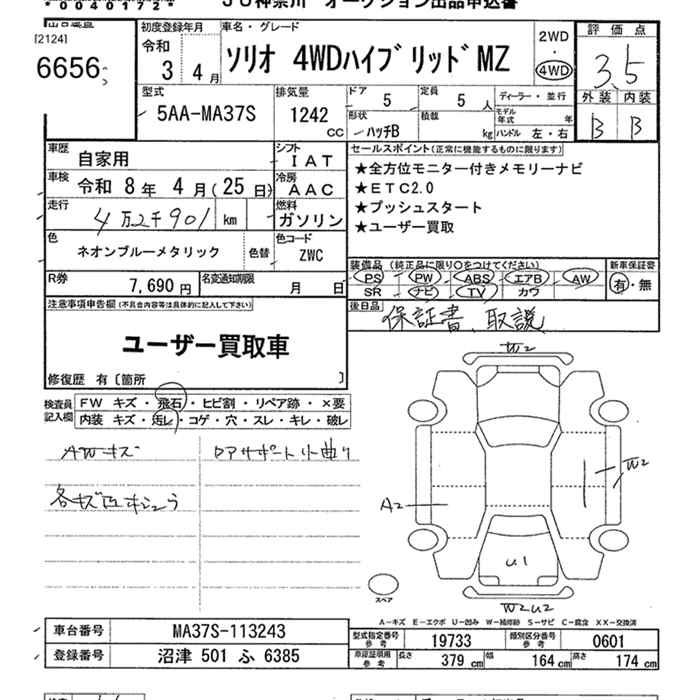 *00401772*
JU神奈川 オークション出品申込書
[2124]
6656
初度登録年月
令和
3 4月
車名・グレード
ソリオ 4WDハイブリッドMZ
2WD
・
4WD
評価点
3.5
外装 内装
B B
型式
5AA-MA37S
排気量
1242
cc
ドア 5
定員 5 人
形状 ハッチB
積載 kg
ディーラー・並行
モデル年式 年
ハンドル 左・右
車歴 自家用
シフト IAT
車検 令和 8年 4月(25日)
冷房 AAC
走行 4万2千901 km
燃料 ガソリン
色 ネオンブルーメタリック 色替
色コード ZWC
R券 7,690円
名変通知期限 月 日
セールスポイント(正常に機能するものに限ります)
★全方位モニター付きメモリーナビ
★ETC2.0
★プッシュスタート
★ユーザー買取
装備品(純正品に限り○をつけてください)
PS PW ABS エアB AW
SR ナビ TV カワ
新車保証書
有・無
後日品
保証書、取説
注意事項申告欄(不具合内容等は具体的に記入して下さい)
ユーザー買取車
修復歴 有〔箇所 〕
検査員記入欄
FW キズ・飛石・ヒビ割・リペア跡・×要
内装 キズ・汚レ・コゲ・穴・スレ・キレ・破レ
AWキズ
コアサポート小曲り
W2
W2
A2
U1
W2U2
スペア
A-キズ E-エクボ U-凹み W-補修跡 S-サビ C-腐食 XX-交換済
車台番号 MA37S-113243
登録番号 沼津 501 ふ 6385
型式指定番号 参考 19733
類別区分番号 参考 0601
車検証積用 参考 長さ 379 cm 幅 164 cm 高さ 174 cm